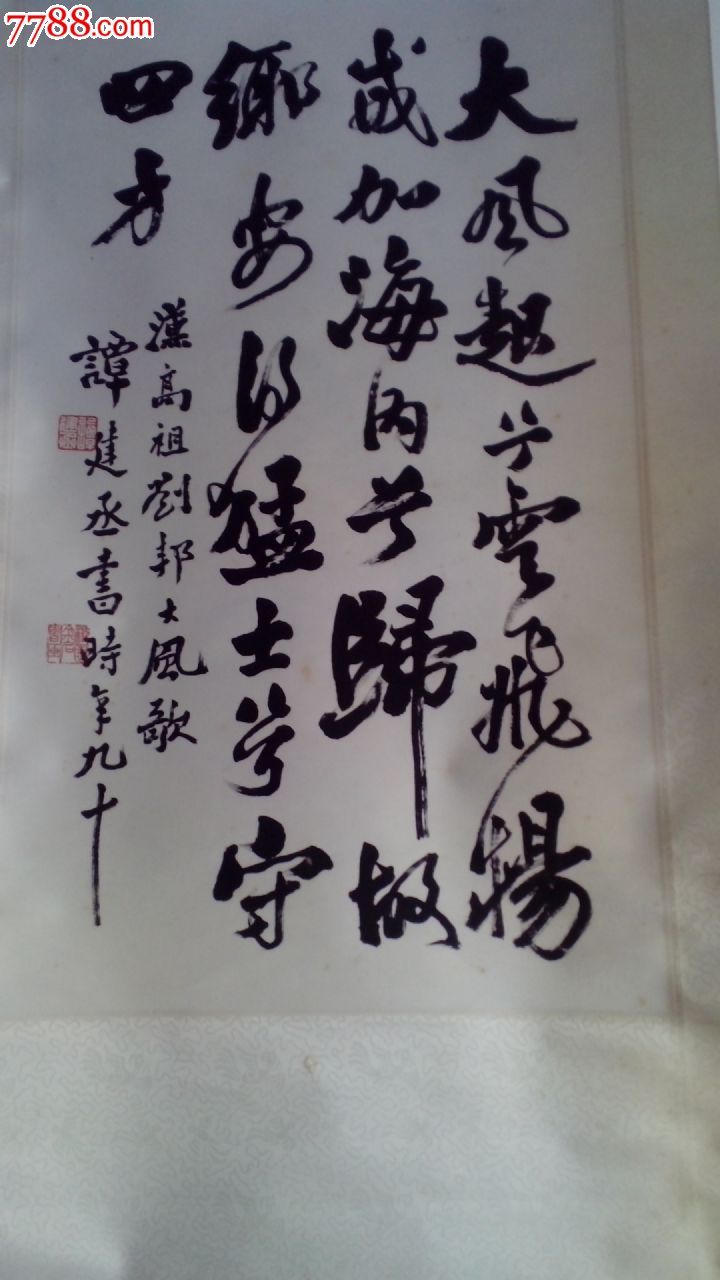 7788.com
大風起兮雲飛揚
威加海內兮歸故
鄉安得猛士兮守
四方
漢高祖劉邦大風歌
譚建丞書時年九十